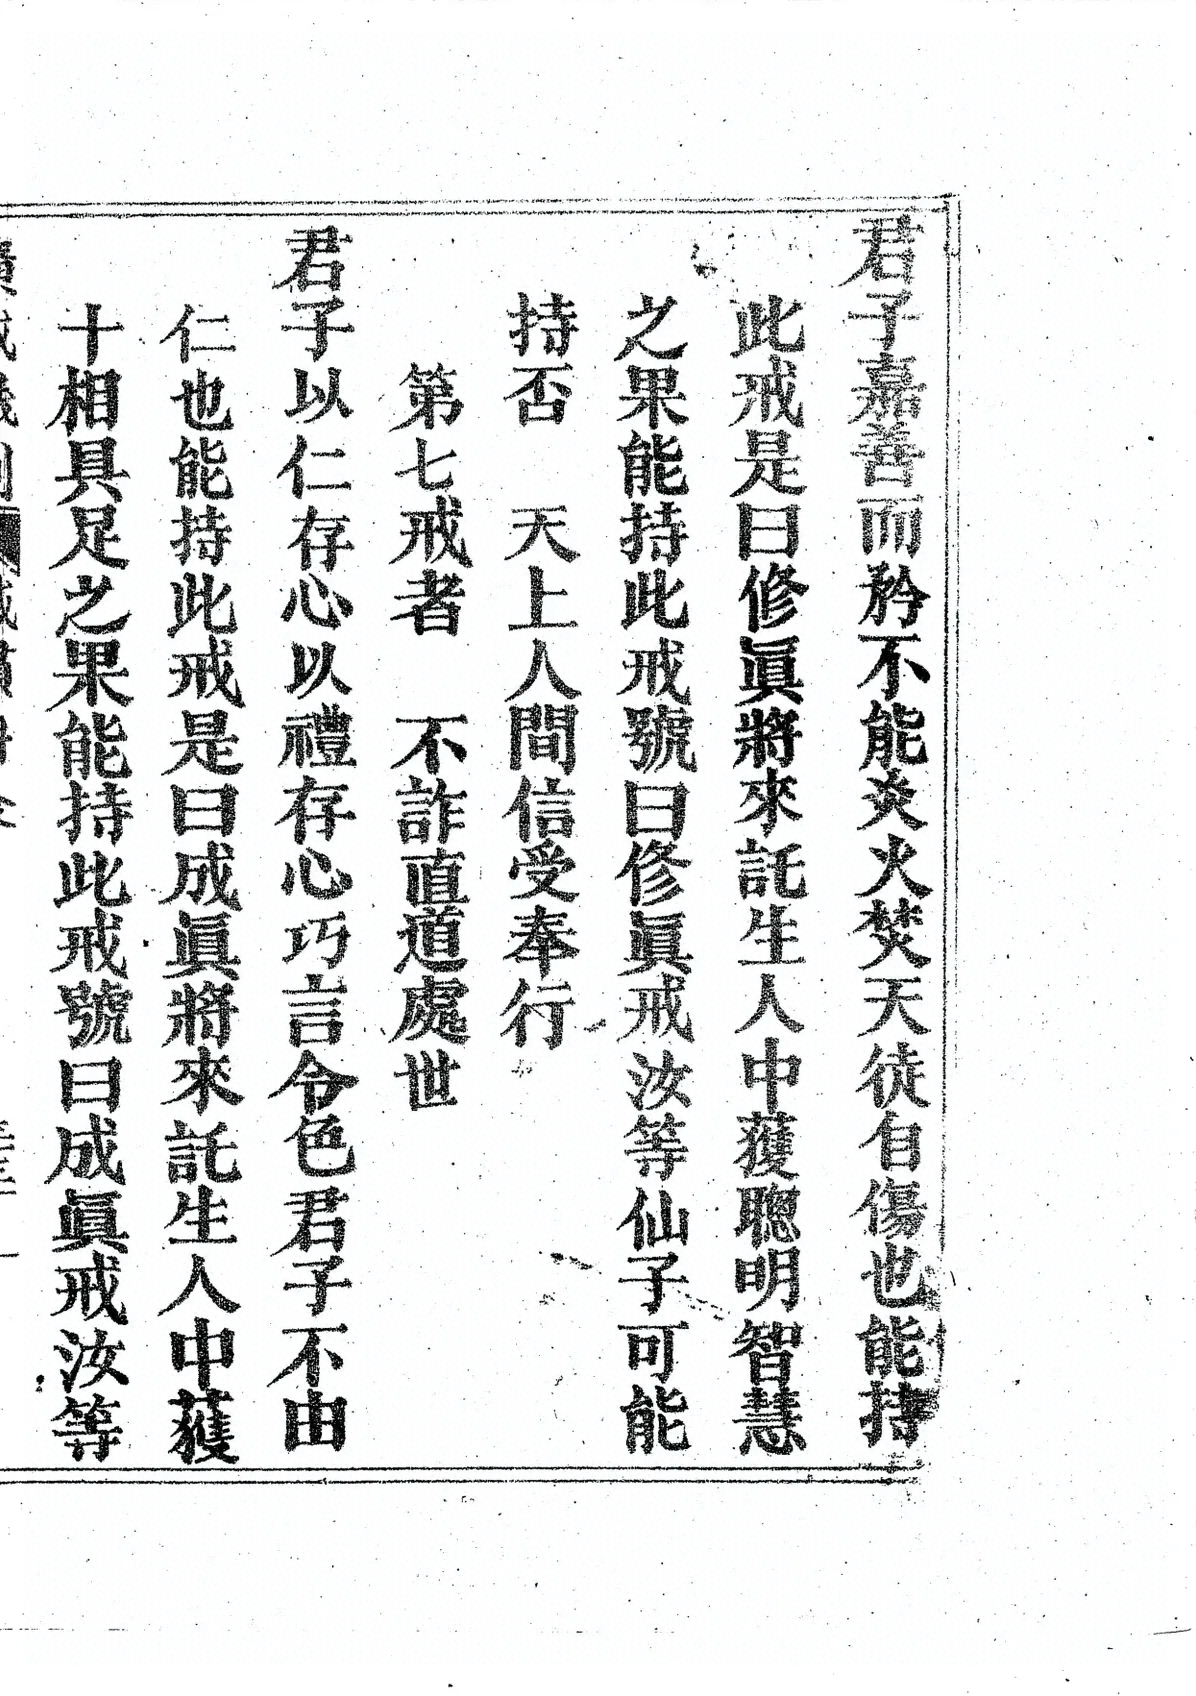 君子嘉善而矜不能炎火焚天徒自傷也能持
此戒是曰修眞將來託生人中獲聰明智慧
之果能持此戒號曰修眞戒汝等仙子可能
持否　天上人間信受奉行
第七戒者　不詐直道處世
君子以仁存心以禮存心巧言令色君子不由
仁也能持此戒是曰成眞將來託生人中獲
十相具足之果能持此戒號曰成眞戒汝等